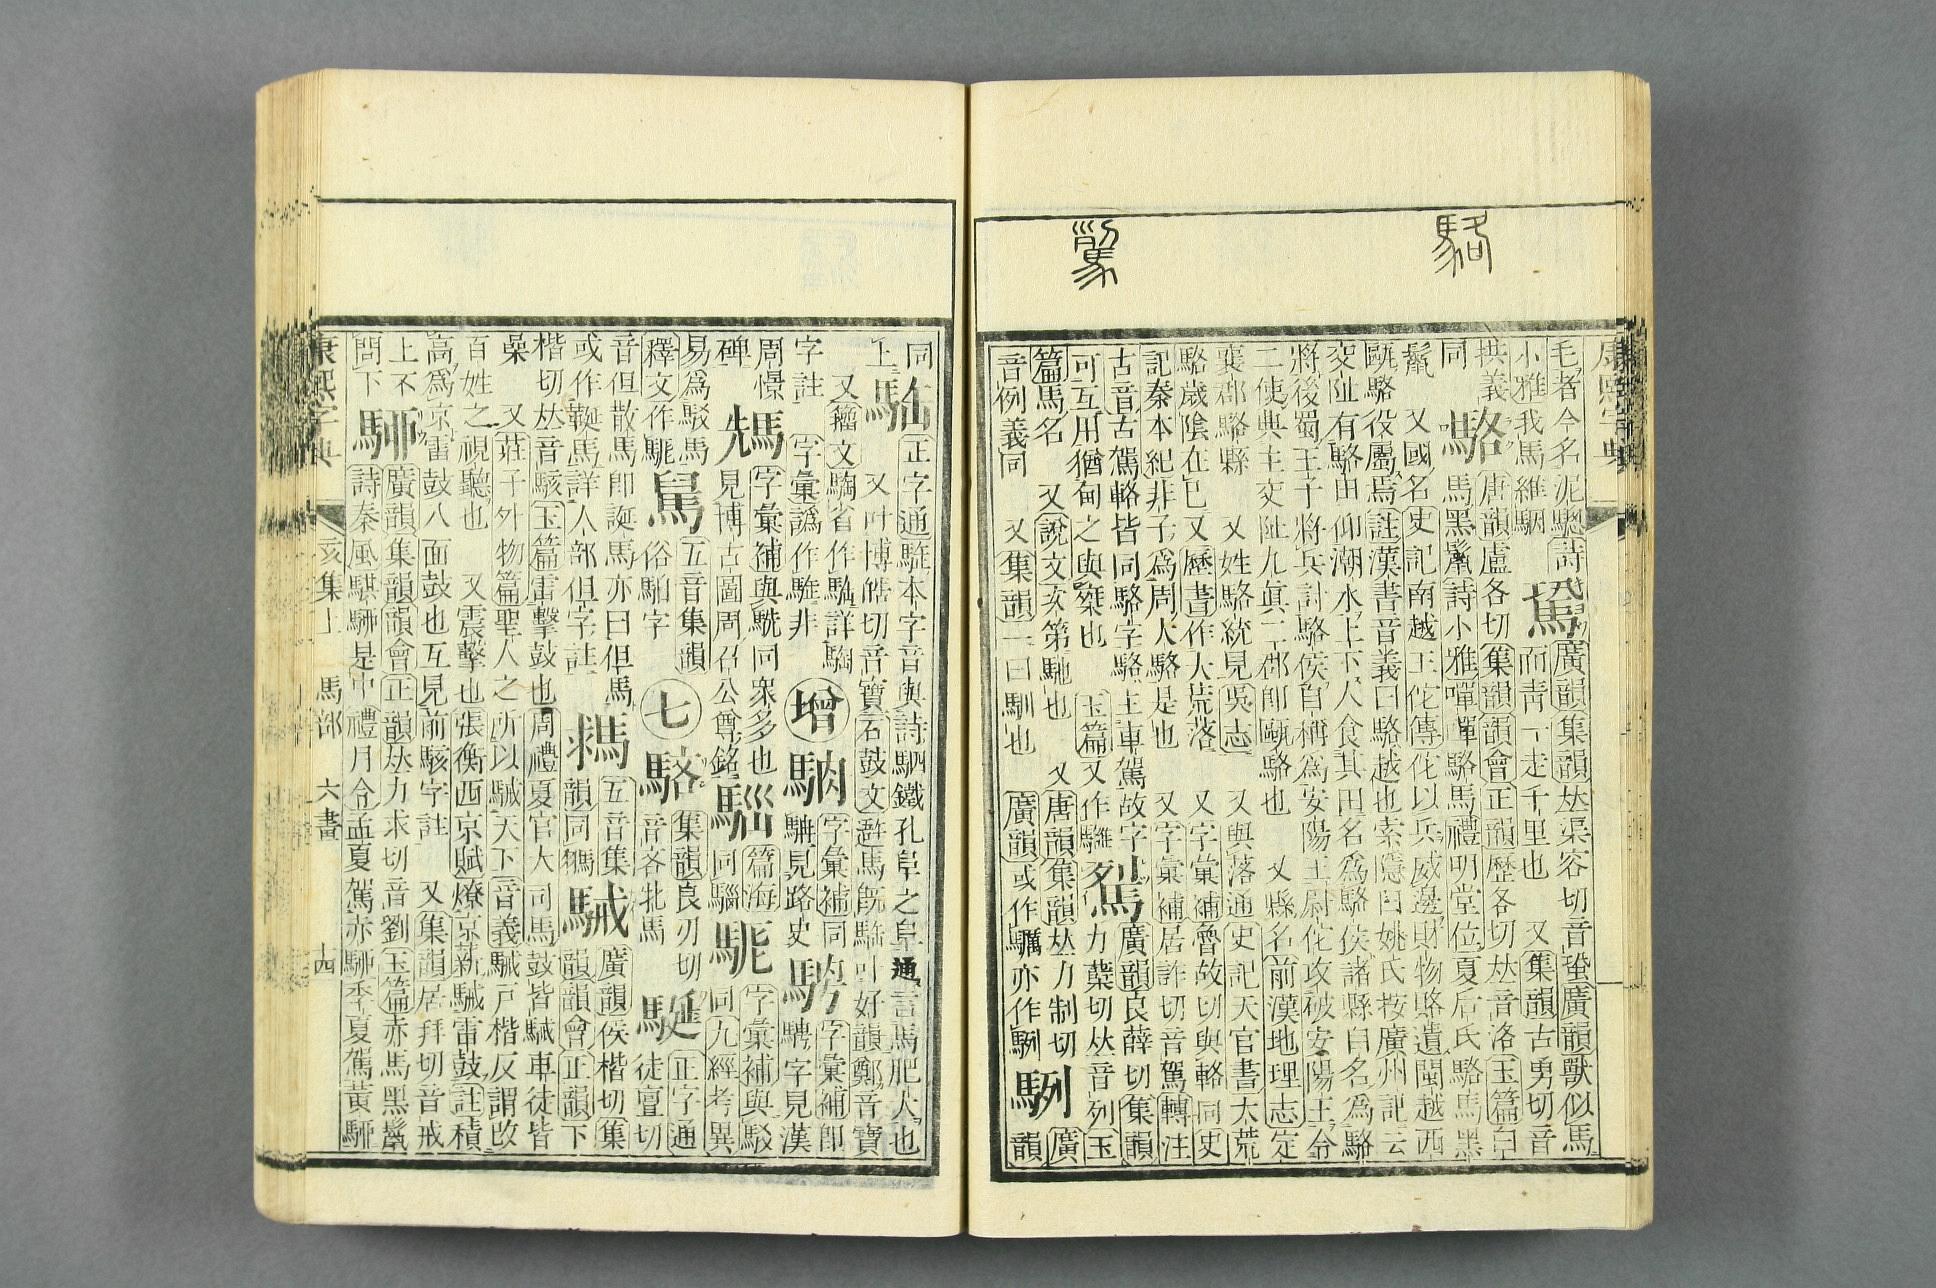 康熙字典
毛者今名泥驄詩
小雅我馬維駰
廣韻集韻𠀤渠容切音蛩廣韻獸似馬
而靑一走千里也 又集韻古勇切音
拱義
同
駱
唐韻盧各切集韻韻會正韻歷各切𠀤音洛玉篇白
馬黑鬣詩小雅嘽嘽駱馬禮明堂位夏后氏駱馬黑
鬣 又國名史記南越王佗傳佗以兵威邊財物賂遺閩越西
甌駱役屬焉註漢書音義曰駱越也索隱曰姚氏按廣州記云
交趾有駱田仰潮水上下人食其田名爲駱侯諸縣自名爲駱
將後蜀王子將兵討駱侯自稱爲安陽王尉佗攻破安陽王令
二使典主交趾九眞二郡卽甌駱也 又縣名前漢地理志定
襄郡駱縣 又姓駱統見吳志 又與落通史記天官書太荒
駱歲陰在巳 又歷書作大荒落 又字彙補魯故切與輅同史
記秦本紀非子爲周人駱是也 又字彙補居許切音駕轉注
古音古駕輅皆同駱字駱主車駕故字
可互用猶甸之與椉也
廣韻良薛切集韻
力蘖切𠀤音列玉
篇馬名 又說文次第馳也 又唐韻集韻𠀤力制切
音例義同 又集韻一曰馴也 廣韻或作 亦作
廣
韻
同
上
正字通駐本字音與詩駟鐵孔阜之阜通言馬肥大也
又叶博皓切音寶石鼓文 馬旣 叶好韻鄭音寶
又籀文騊省作 詳騊
字註 字彙譌作 非
增
字彙補同
見路史
字彙補卽
騁字見漢
周憬
碑
字彙補與駪同衆多也
見博古圖周召公尊銘
篇海
同騮
字彙補與駁
同九經考異
易爲駁馬
釋文作
五音集韻
俗馲字
七
駱
集韻良刃切
音吝牝馬
駳
正字通
徒亶切
音但散馬卽誕馬亦曰但馬
或作 馬詳人部但字註
五音集
韻同
駴
廣韻侯楷切集
韻韻會正韻下
楷切𠀤音駭玉篇雷擊鼓也周禮夏官大司馬鼓皆駴車徒皆
譟 又莊子外物篇聖人之所以駴天下音義駴戸楷反謂改
百姓之視聽也 又震擊也張衡西京賦燎京薪駴雷鼓註積
高爲京雷鼓八面鼓也互見前駭字註 又集韻居拜切音戒
上不
問下
廣韻集韻韻會正韻𠀤力求切音劉玉篇赤馬黑鬣
詩秦風騏 是中禮月令孟夏駕赤 季夏駕黃
康熙字典 亥集上 馬部 六畫 十四